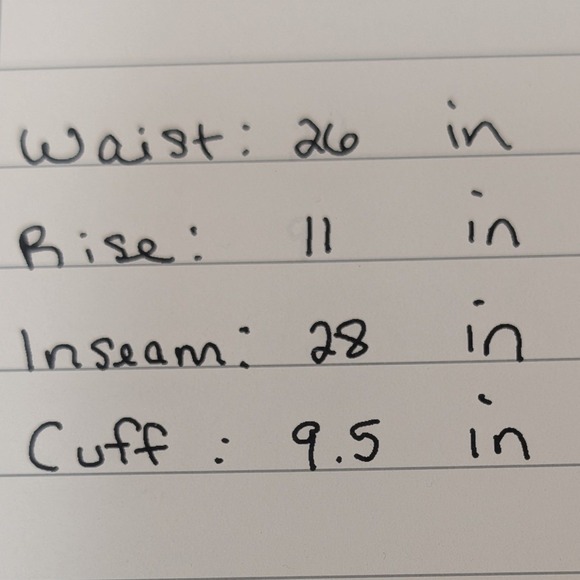 Waist: 26 in
Rise: 11 in
Inseam: 28 in
Cuff : 9.5 in